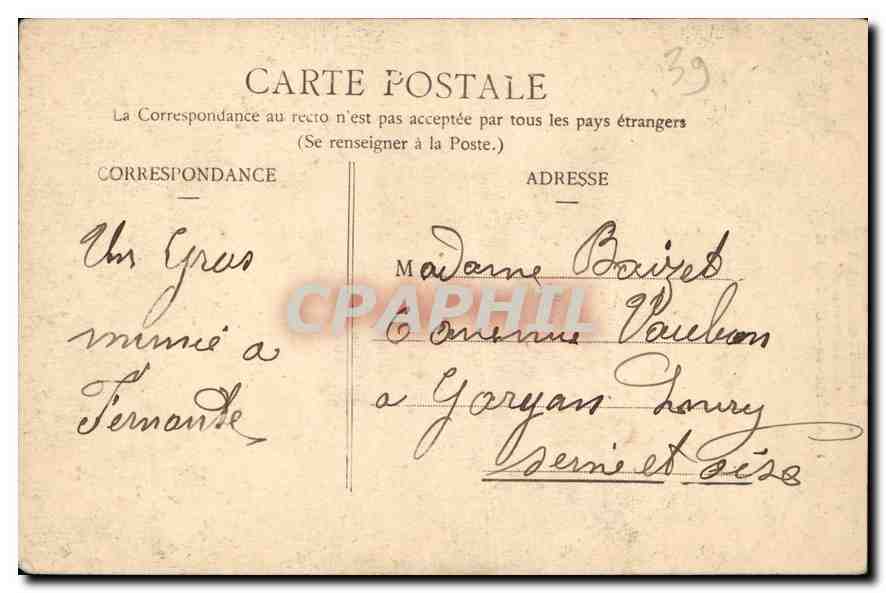 39
CARTE POSTALE
La Correspondance au recto n'est pas acceptée par tous les pays étrangers
(Se renseigner à la Poste.)
CORRESPONDANCE
Un Gros
mimie a
Fernande
ADRESSE
Madame Baizet
6 avenue Vauban
a Gargan Livry
seine et oise
CPAPHIL